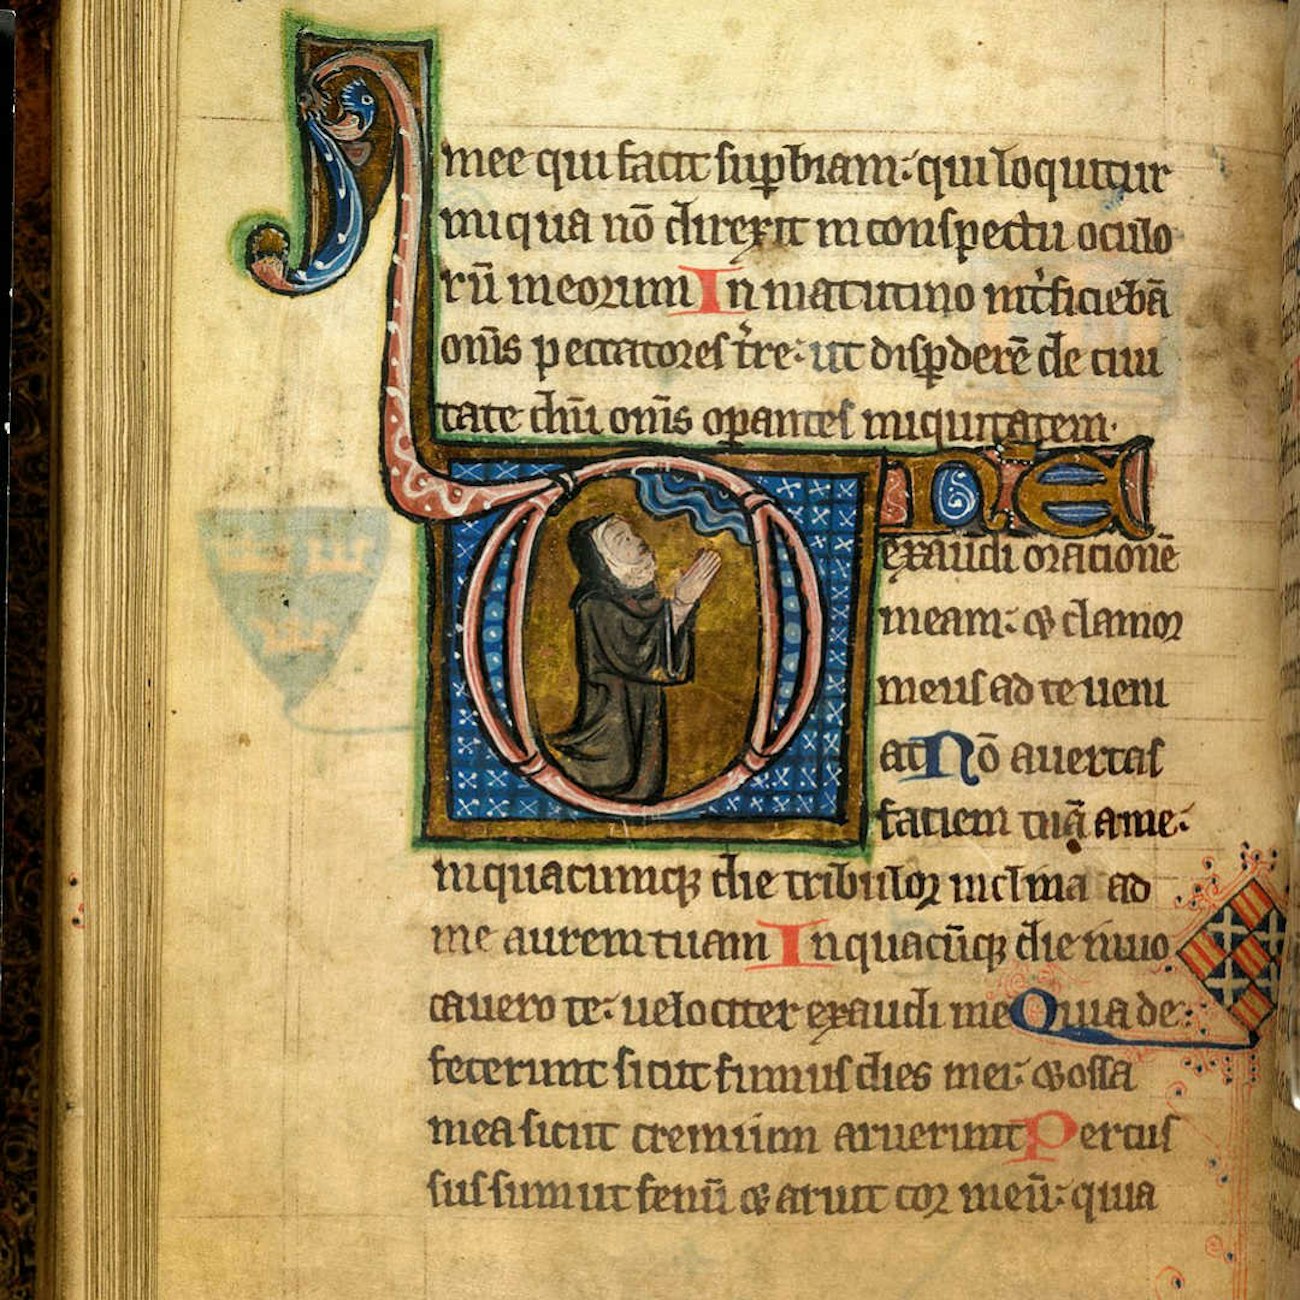 mee qui facit sup̱biam: qui loquitur
iniqua nō direxit in conspectu oculo
rū meorum In matutino int̓ficiebā
om̄s peccatores t̓re: ut disp̱derē de ciui
tate dn̄i om̄s op̱antes iniquitatem.
Dne
exaudi orationē
meam: ⁊ clamor
meus ad te ueni
at Nō auertas
faciem tuā a me:
inquacumq; die tribulor inclina ad
me aurem tuam In quacūq; die inuo
cauero te: uelociter exaudi me Quia de
fecerunt sicut fumus dies mei: ⁊ ossa
mea sicut cremium aruerunt Percus
sus sum ut fenū ⁊ aruit cor meū: quia